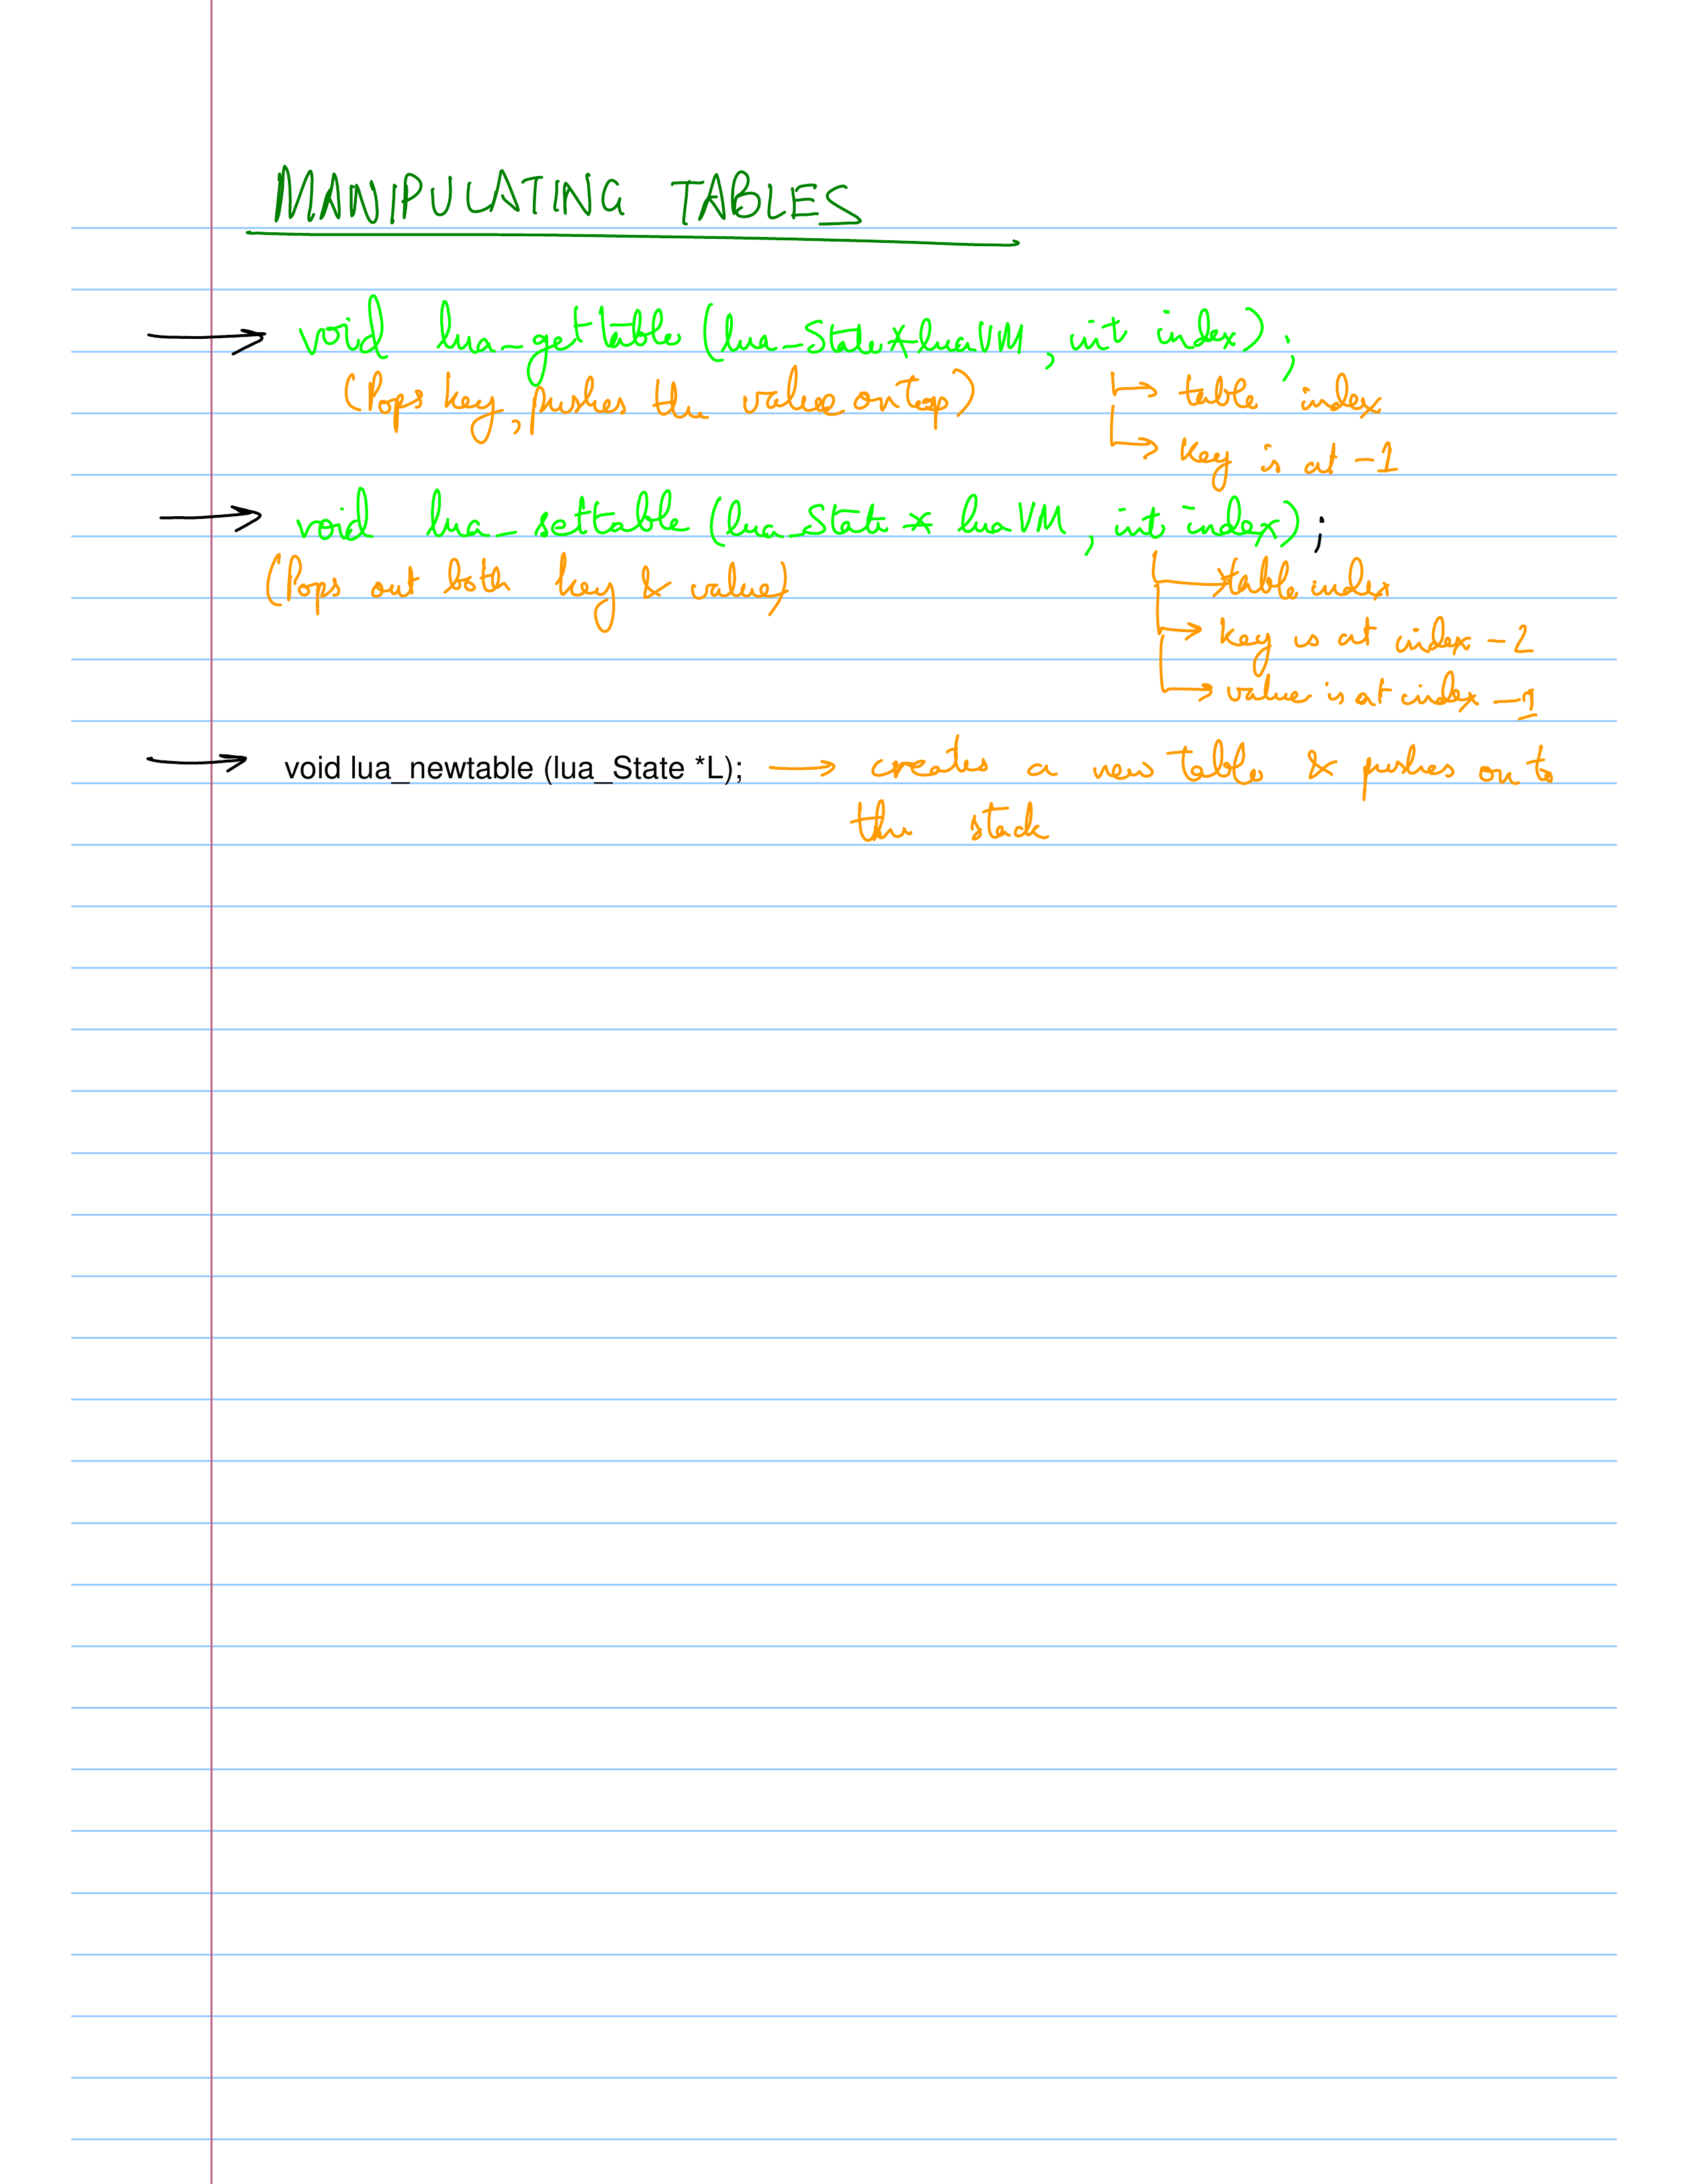 MANIPULATING TABLES
void lua_gettable (lua_State*luaVM, int index);
(Pops key, pushes the value on top) → table index
→ key is at -1
void lua_settable (lua_State * luaVM, int index);
(Pops out both key & value) → table index
→ key is at index -2
→ value is at index -1
void lua_newtable (lua_State *L); → creates a new table & pushes on to
the stack